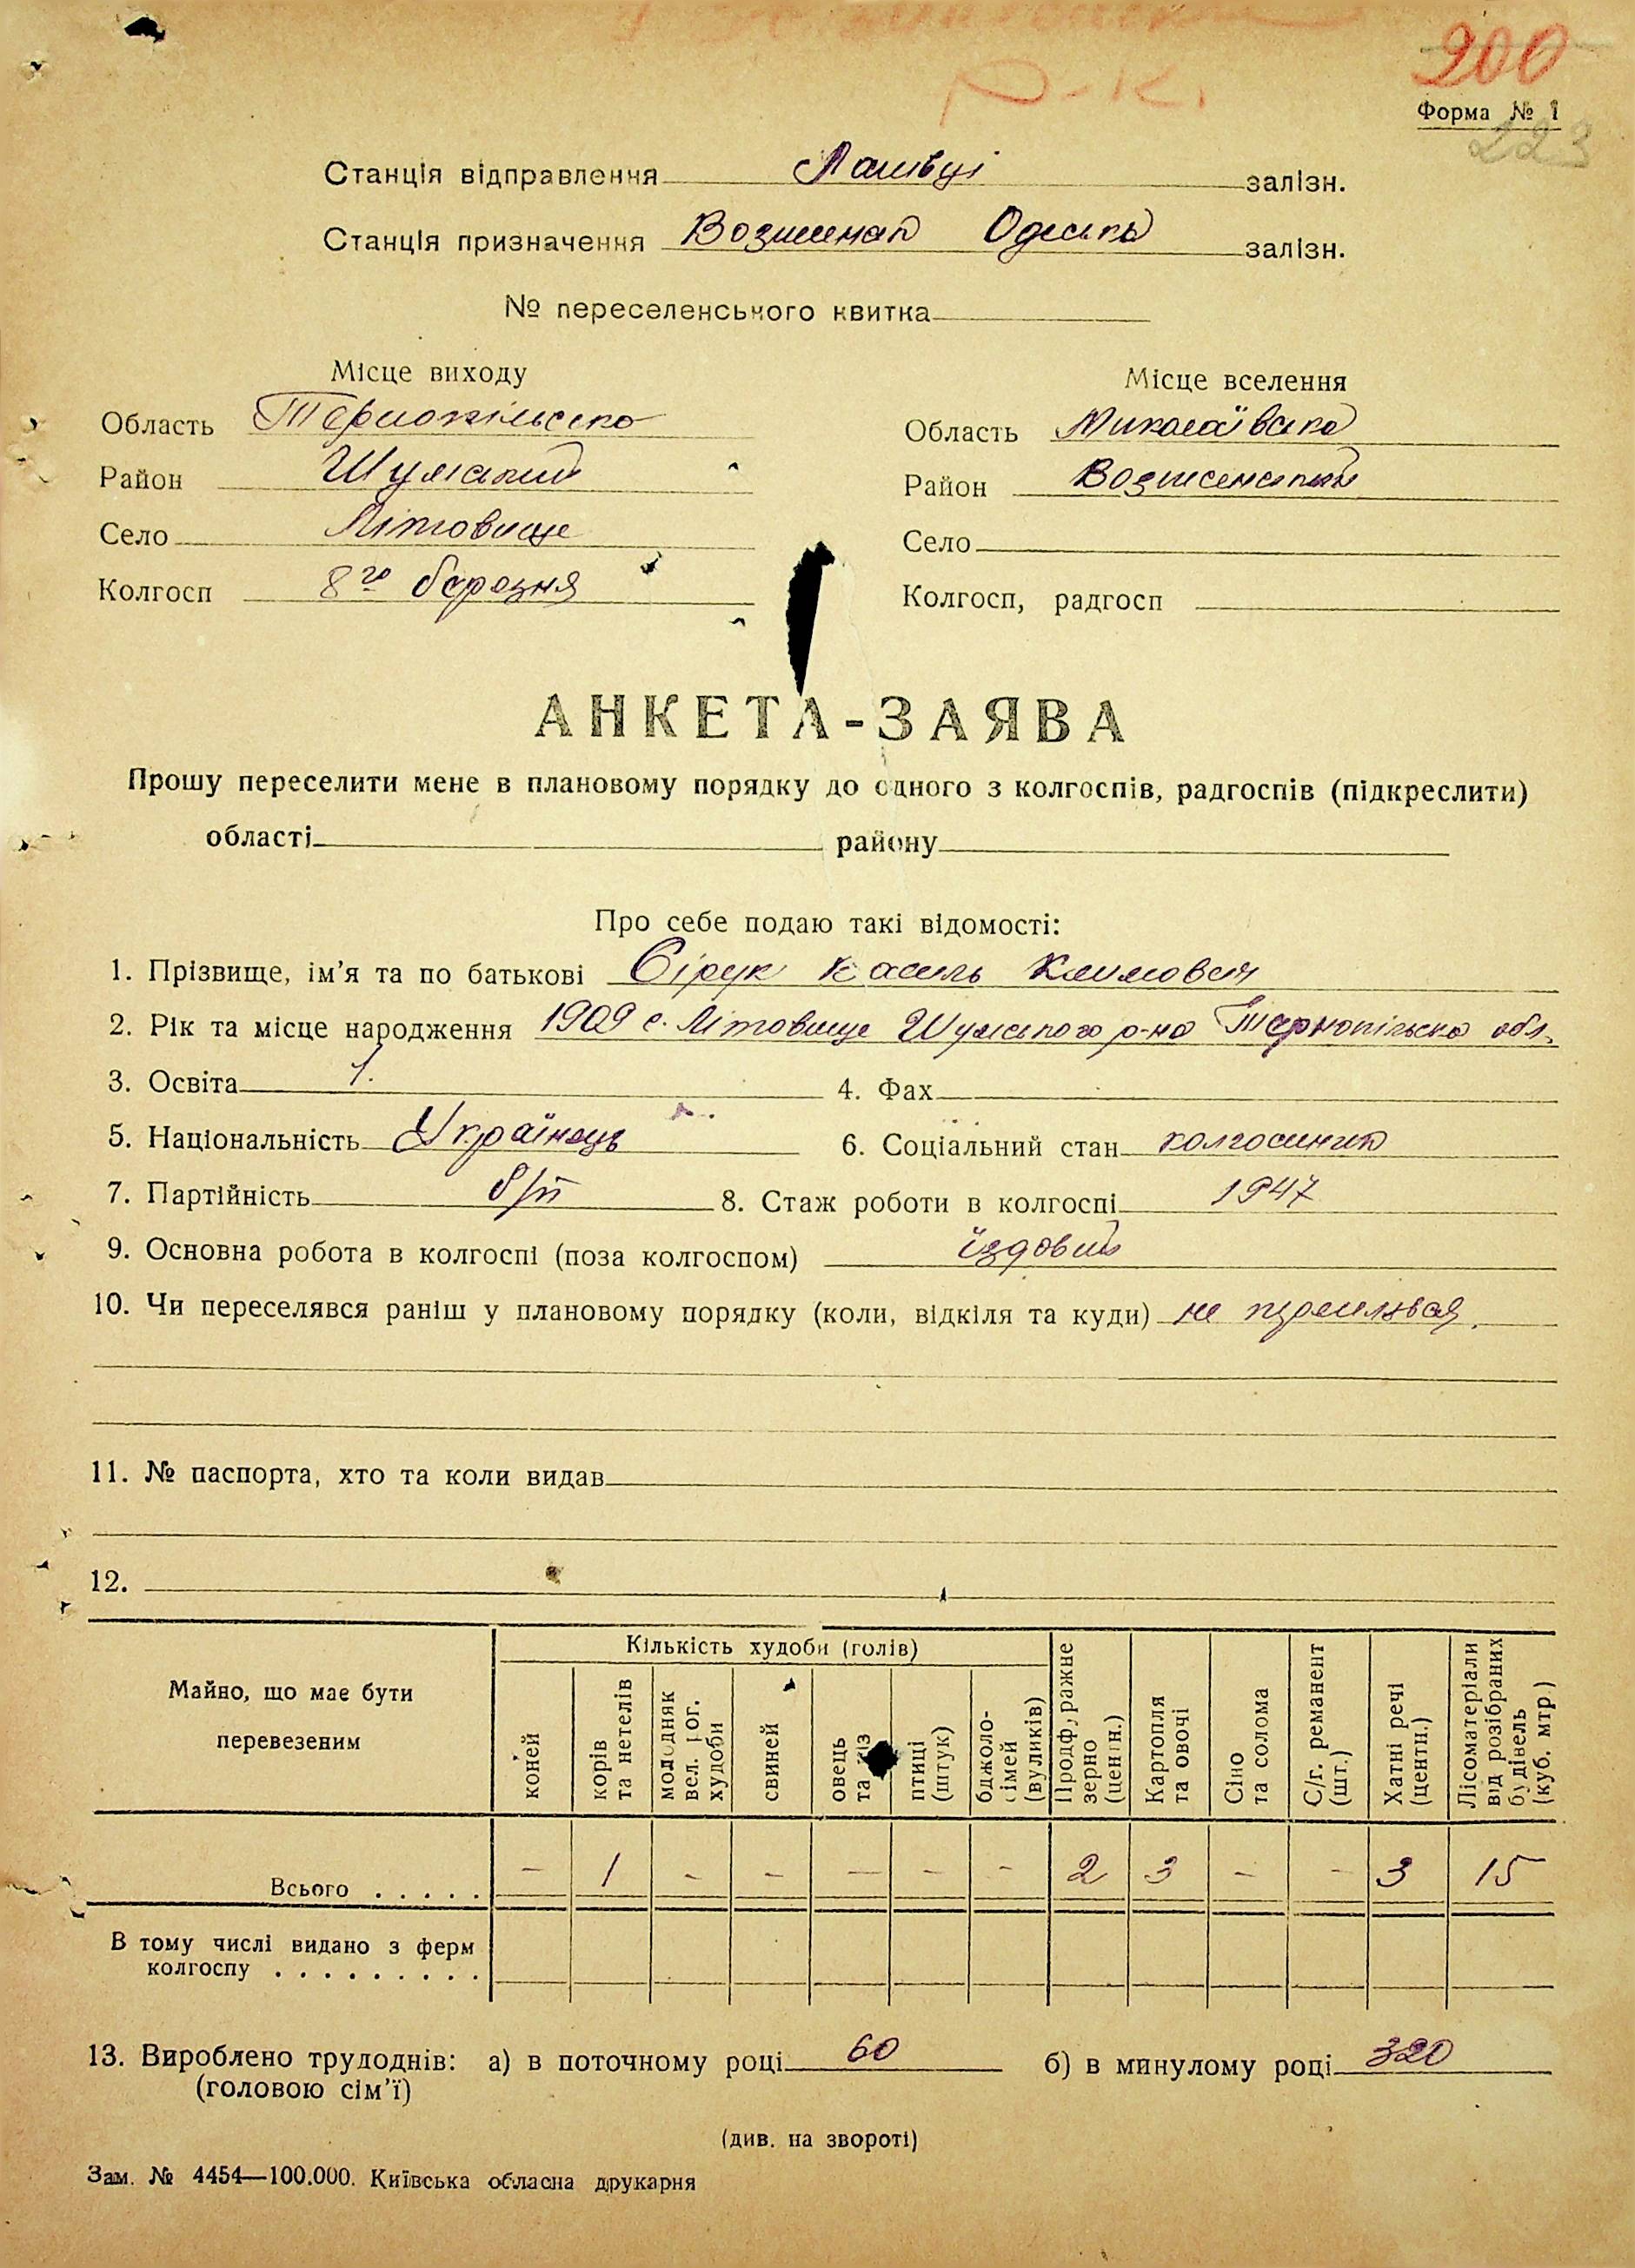 200
Р.К.
Форма № 1
223
Станція відправлення Лашвці залізн.
Станція призначення Одеська залізн.
№ переселенського квитка
Місце виходу
Місце вселення
Область Тернопільська
Область Миколаївська
Район Шумський
Район Вознесенський
Село Літовище
Село
Колгосп 8го березня
Колгосп, радгосп
АНКЕТА-ЗАЯВА
Прошу переселити мене в плановому порядку до одного з колгоспів, радгоспів (підкреслити)
області району
Про себе подаю такі відомості:
1. Прізвище, ім'я та по батькові Сірук Василь Климович
2. Рік та місце народження 1909 с. Літовище Шумського р-на Тернопільська обл.
3. Освіта 1. 4. Фах
5. Національність Українець 6. Соціальний стан колгоспник
7. Партійність б/п 8. Стаж роботи в колгоспі 1947
9. Основна робота в колгоспі (поза колгоспом) їздовий
10. Чи переселявся раніш у плановому порядку (коли, відкіля та куди) не переселявся.
11. № паспорта, хто та коли видав
12.
Майно, що має бути перевезеним
Кількість худоби (голів)
коней
корів та нетелів
молодняк вел. рог. худоби
свиней
овець та кіз
птиці (штук)
бджоло-сімей (вуликів)
Продфуражне зерно (центн.)
Картопля та овочі
Сіно та солома
С/г. реманент (шт.)
Хатні речі (центн.)
Лісоматеріали від розібраних будівель (куб. мтр.)
Всього . . . . . – 1 – – – – – 2 3 – – 3 15
В тому числі видано з ферм
колгоспу . . . . . . . . .
13. Вироблено трудоднів: а) в поточному році 60 б) в минулому році 320
(головою сім'ї)
(див. на звороті)
Зам. № 4454—100.000. Київська обласна друкарня